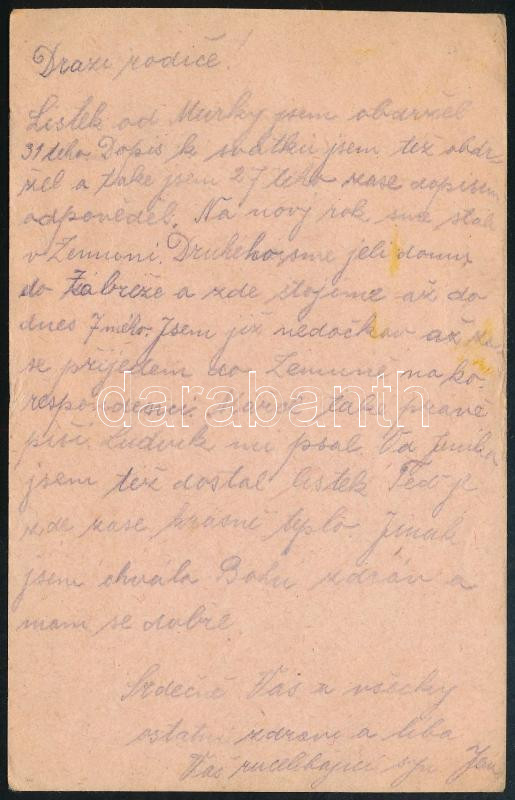 Drazí rodiče!
Lístek od Mařky jsem obdržel
31tého. Dopis k svátku jsem též obdr-
žel a také jsem 27tého zase dopisem
odpověděl. Na nový rok sme stali
v Zemuni. Druhého sme jeli domu
do Zabreže a zde stojeme až do
dnes 7mého. Jsem již nedočkav až za
se přijedem do Zemuně na ko-
respondenci. Karel také psaně
píší. Ludvik mi psal. Od
jsem též dostal lístek. Teď je
zde zase krásně teplo. Jinak
jsem chvála Bohu zdráv a
mám se dobře
Srdečně Vás a všecky
ostatní zdraví a líbá
Váš rucelíbající syn Jan
darabanth